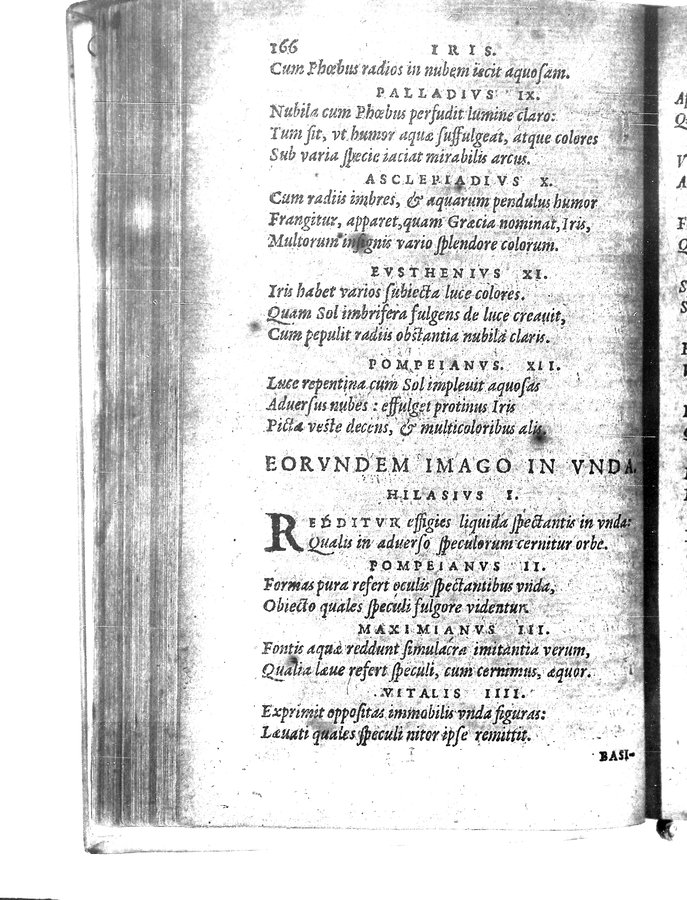 166 IRIS.
Cum Phœbus radios in nubem iecit aquosam.
PALLADIVS IX.
Nubila cum Phœbus perfudit lumine claro:
Tum fit, vt humor aquæ suffulgeat, atque colores
Sub varia specie iaciat mirabilis arcus.
ASCLEPIADIVS X.
Cum radiis imbres, & aquarum pendulus humor
Frangitur, apparet, quam Græcia nominat, Iris,
Multorum insignis vario splendore colorum.
EVSTHENIVS XI.
Iris habet varios subiecta luce colores.
Quam Sol imbrifera fulgens de luce creauit,
Cum pepulit radiis obstantia nubila claris.
POMPEIANVS. XII.
Luce repentina cum Sol impleuit aquosas
Aduersus nubes: effulget protinus Iris
Picta veste decens, & multicoloribus alis.
EORVNDEM IMAGO IN VNDA.
HILASIVS I.
REDDITVR effigies liquida spectantis in vnda:
Qualis in aduerso speculorum cernitur orbe.
POMPEIANVS II.
Formas pura refert oculis spectantibus vnda,
Obiecto quales speculi fulgore videntur.
MAXIMIANVS III.
Fontis aquæ reddunt simulacra imitantia verum,
Qualia læue refert speculi, cum cernimus, æquor.
VITALIS IIII.
Exprimit oppositas immobilis vnda figuras:
Læuati quales speculi nitor ipse remittit.
BASI-